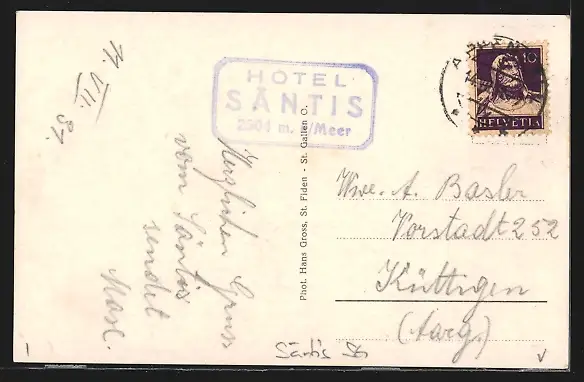 11. VII. 31.
HOTEL
SÄNTIS
2504 m. ü/Meer
Herzlichen Gruss
vom Säntis
sendet
Phot. Hans Gross, St. Fiden - St. Gallen O.
10
HELVETIA
Wwe. A. Basler
Vorstadt 252
Küttigen
(Aarg.)
Säntis